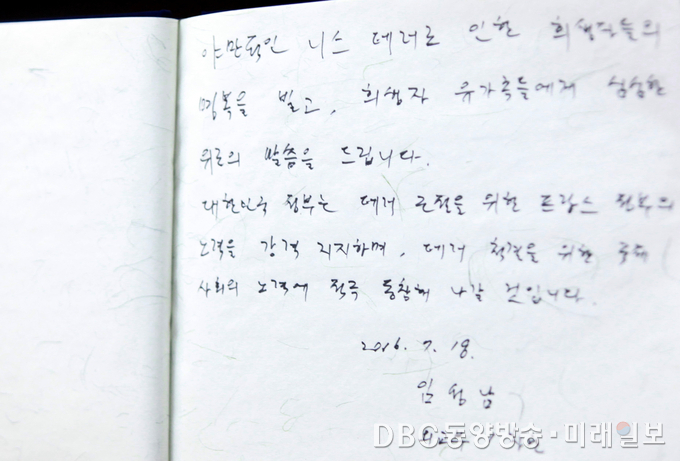 야만적인 니스 테러로 인한 희생자들의
명복을 빌고, 희생자 유가족들에게 심심한
위로의 말씀을 드립니다.
대한민국 정부는 테러 근절을 위한 프랑스 정부의
노력을 강력 지지하며, 테러 척결을 위한 국제
사회의 노력에 적극 동참해 나갈 것입니다.
2016. 7. 18.
임성남
DBS동양방송·미래일보